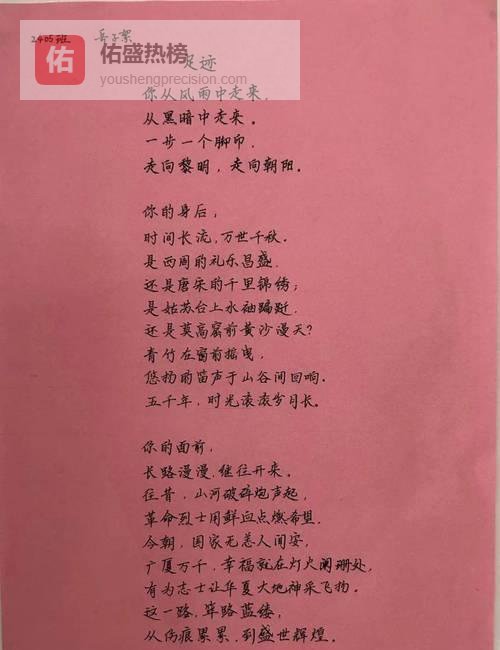 2405班
佑
佑盛热榜
youshengprecision.com
足迹
你从风雨中走来,
从黑暗中走来。
一步一个脚印,
走向黎明,走向朝阳。
你的身后,
时间长流,万世千秋.
是西周的礼乐昌盛,
还是唐宋的千里锦绣;
是姑苏台上水袖蹁跹,
还是莫高窟前黄沙漫天?
青竹在窗前摇曳,
悠扬的笛声于山谷间回响。
五千年,时光滚滚岁月长。
你的面前,
长路漫漫,继往开来。
往昔,山河破碎炮声起,
革命烈士用鲜血点燃希望.
今朝,国家无恙人间安,
广厦万千,幸福就在灯火阑珊处,
有为志士让华夏大地神采飞扬。
这一路,筚路蓝缕,
从伤痕累累,到盛世辉煌。